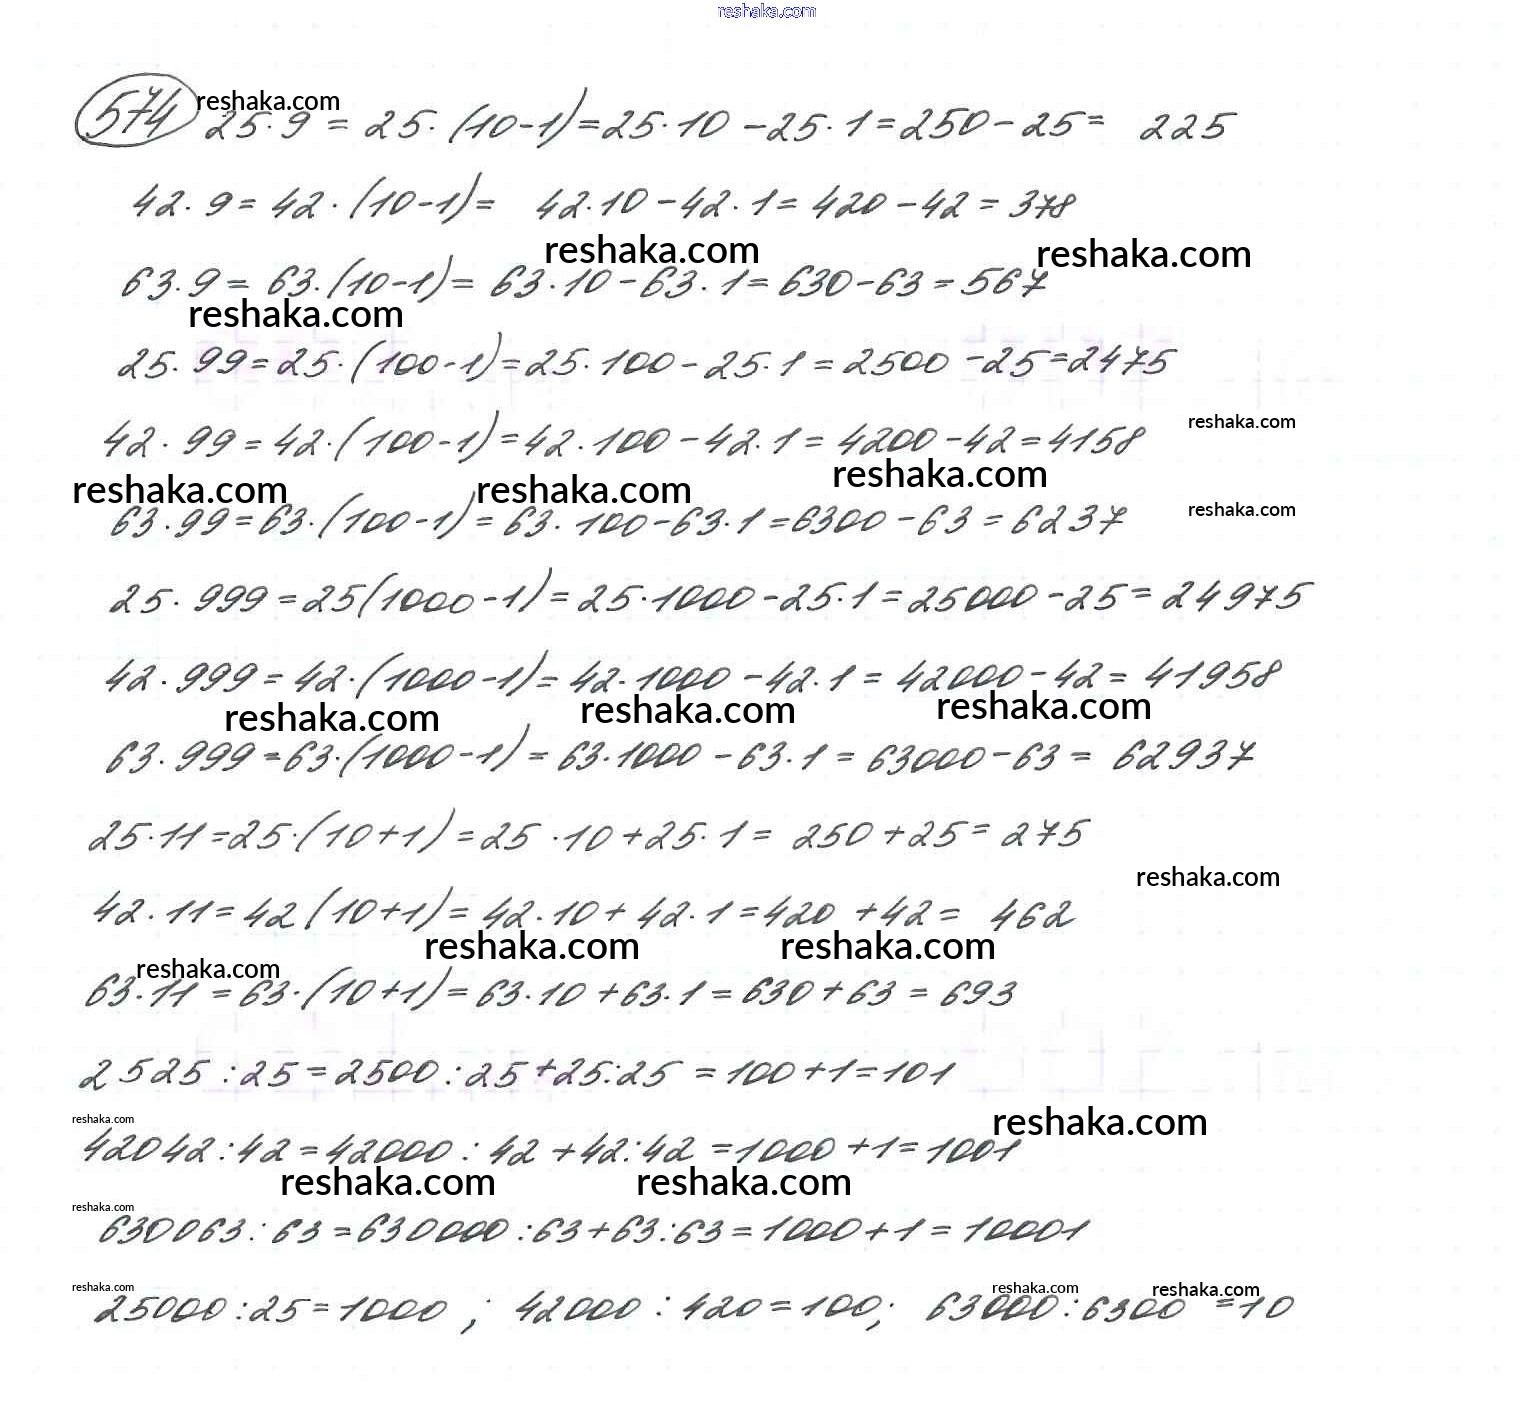 reshaka.com
574 reshaka.com
25·9 = 25·(10-1)=25·10 -25·1=250-25= 225
42·9= 42·(10-1)= 42·10-42·1= 420-42=378
reshaka.com reshaka.com
63·9= 63·(10-1)= 63·10-63·1=630-63=567
reshaka.com
25·99=25·(100-1)=25·100-25·1=2500-25=2475
reshaka.com
42·99=42·(100-1)=42·100-42·1=4200-42=4158
reshaka.com reshaka.com reshaka.com
63·99=63·(100-1)=63·100-63·1=6300-63=6237
reshaka.com
25·999=25(1000-1)=25·1000-25·1=25000-25=24975
42·999=42·(1000-1)=42·1000-42·1=42000-42=41958
reshaka.com reshaka.com reshaka.com
63·999=63·(1000-1)=63·1000-63·1=63000-63= 62937
25·11=25·(10+1)=25·10+25·1= 250+25=275
reshaka.com
42·11=42(10+1)=42·10+42·1=420+42= 462
reshaka.com reshaka.com
reshaka.com
63·11=63·(10+1)=63·10+63·1=630+63=693
2525:25=2500:25+25:25=100+1=101
reshaka.com reshaka.com
42042:42=42000:42+42:42=1000+1=1001
reshaka.com reshaka.com
reshaka.com
630063:63=630000:63+63:63=1000+1=10001
reshaka.com reshaka.com reshaka.com
25000:25=1000 ; 42000:420=100; 63000:6300=10